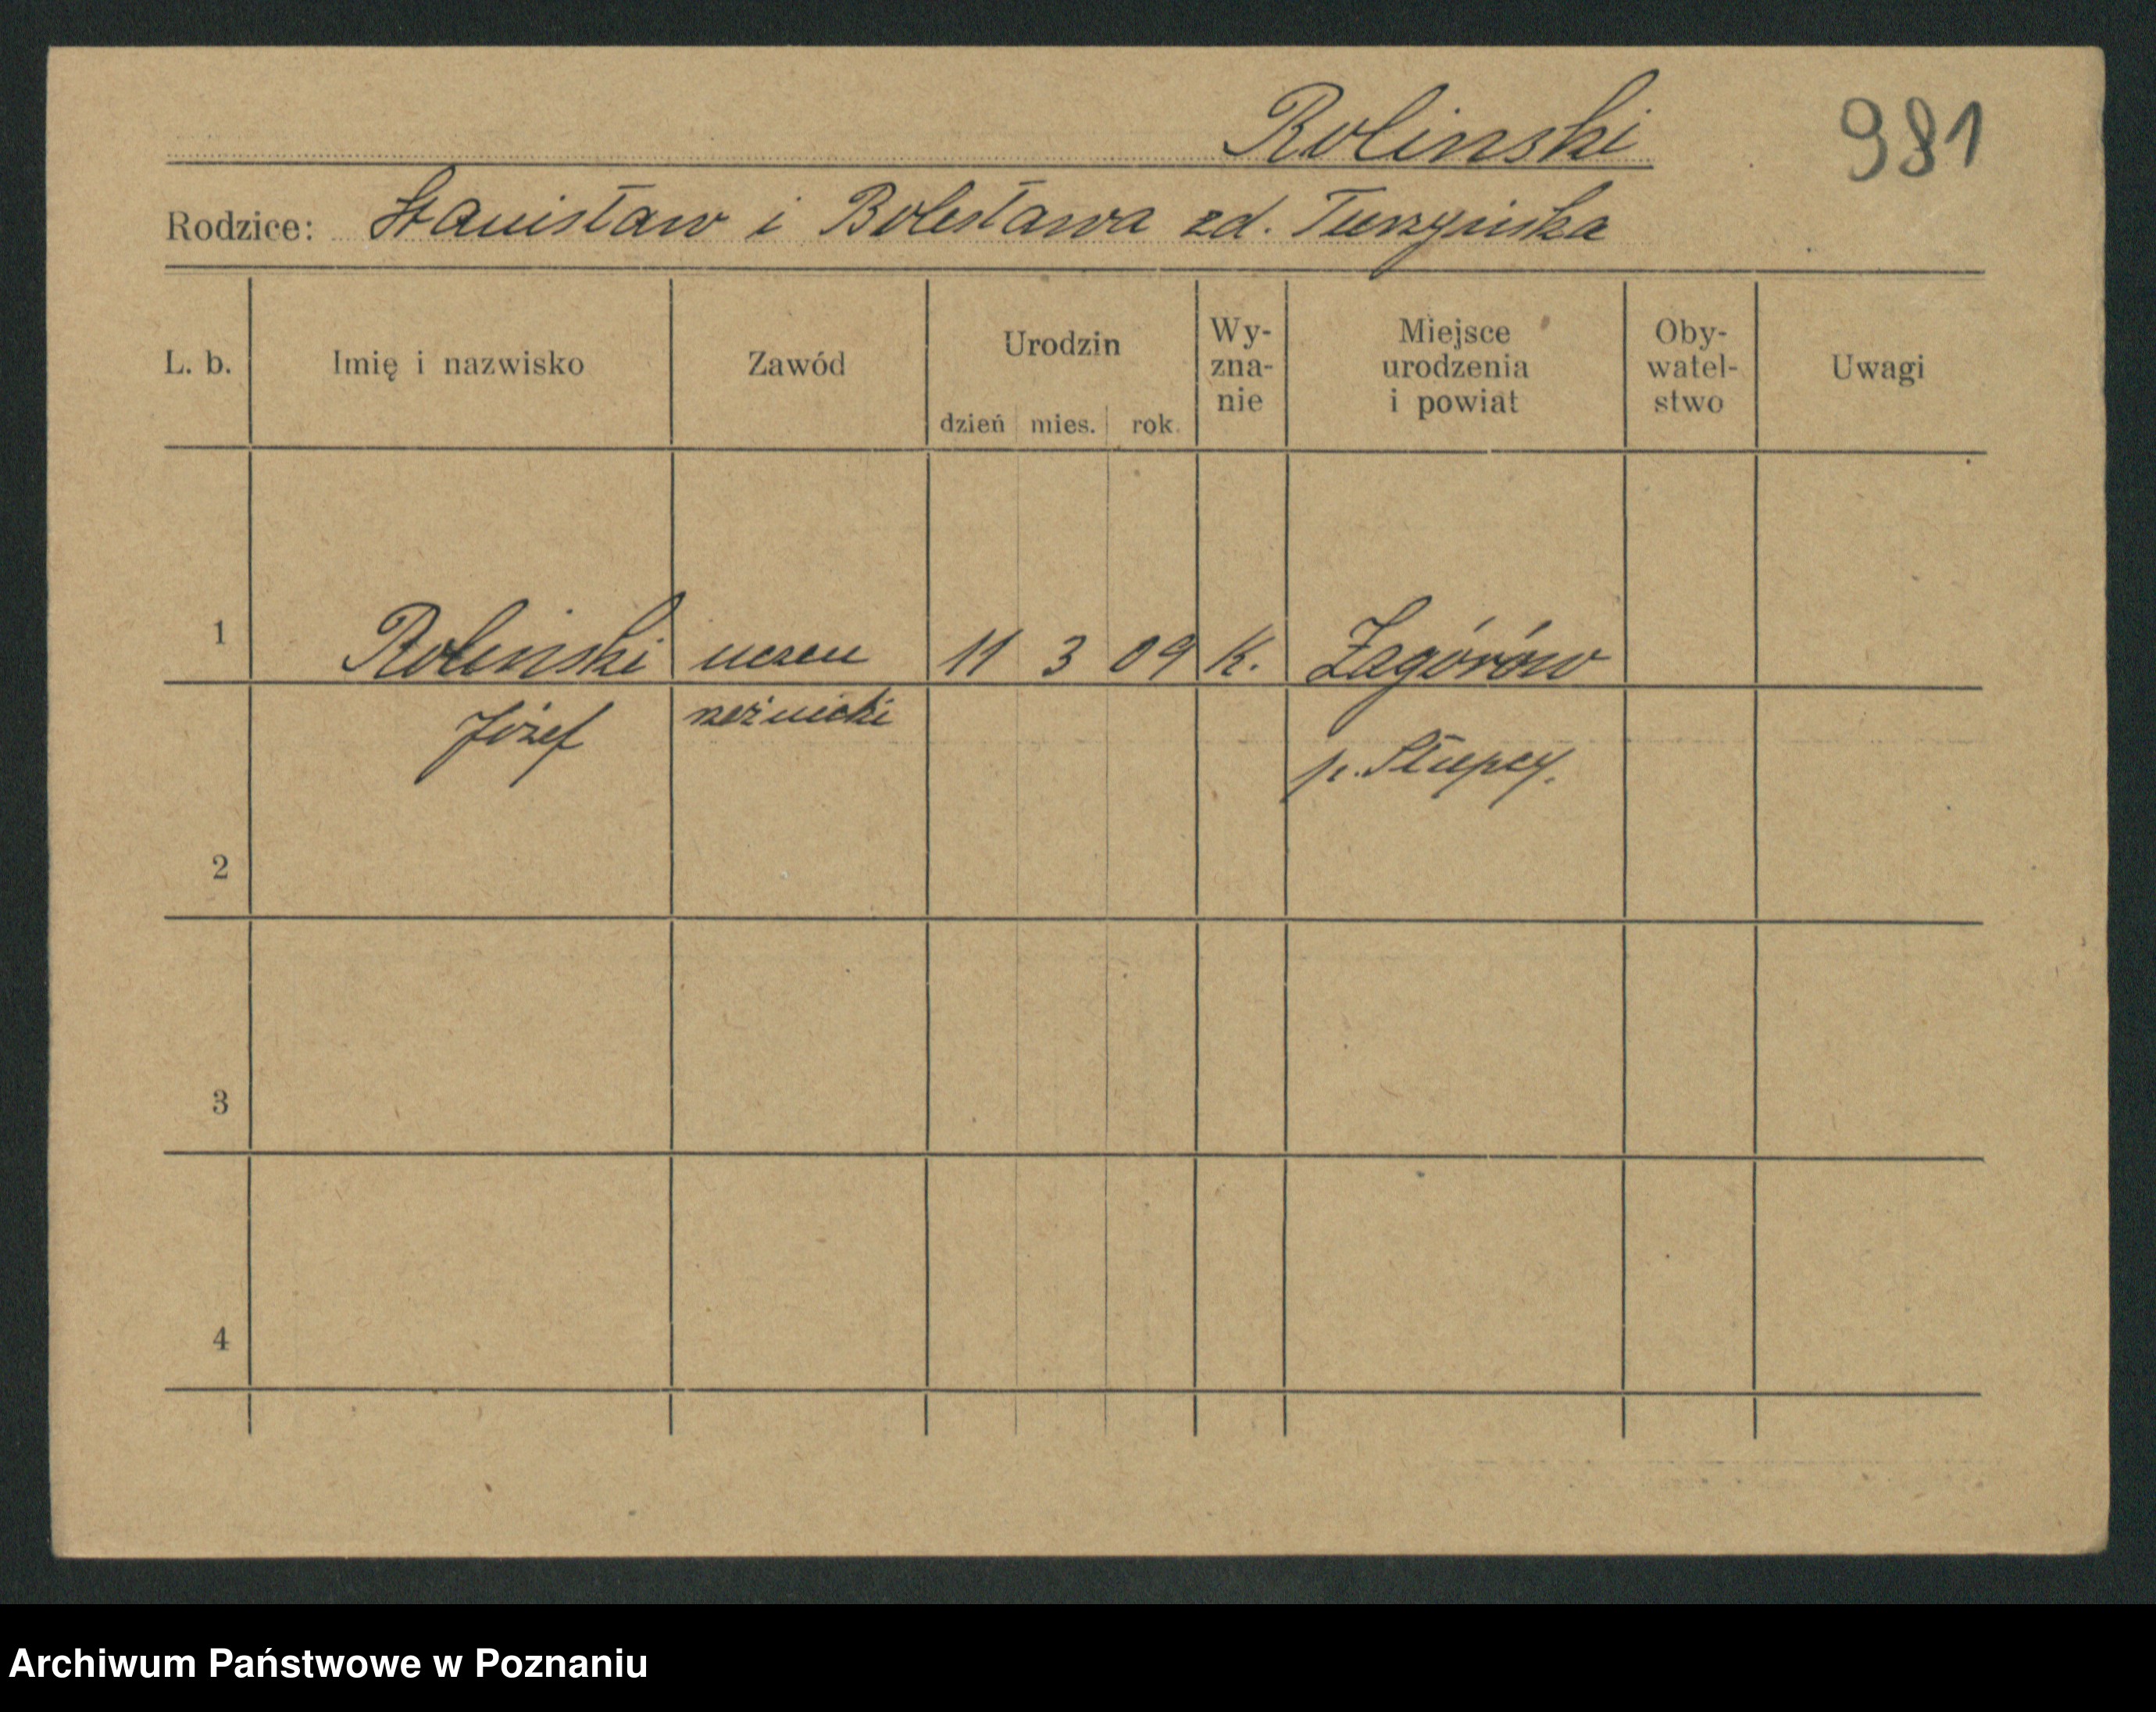 Rolinski
981
Rodzice: Stanisław i Bolesława zd. Turzyńska
L. b. Imię i nazwisko Zawód Urodzin dzień mies. rok. Wy-zna-nie Miejsce urodzenia i powiat Oby-watel-stwo Uwagi
1 Roliński uczeń 11 3 09 K. Zagórów
Józef rzeźnicki p. Słupcy.
2
3
4
Archiwum Państwowe w Poznaniu